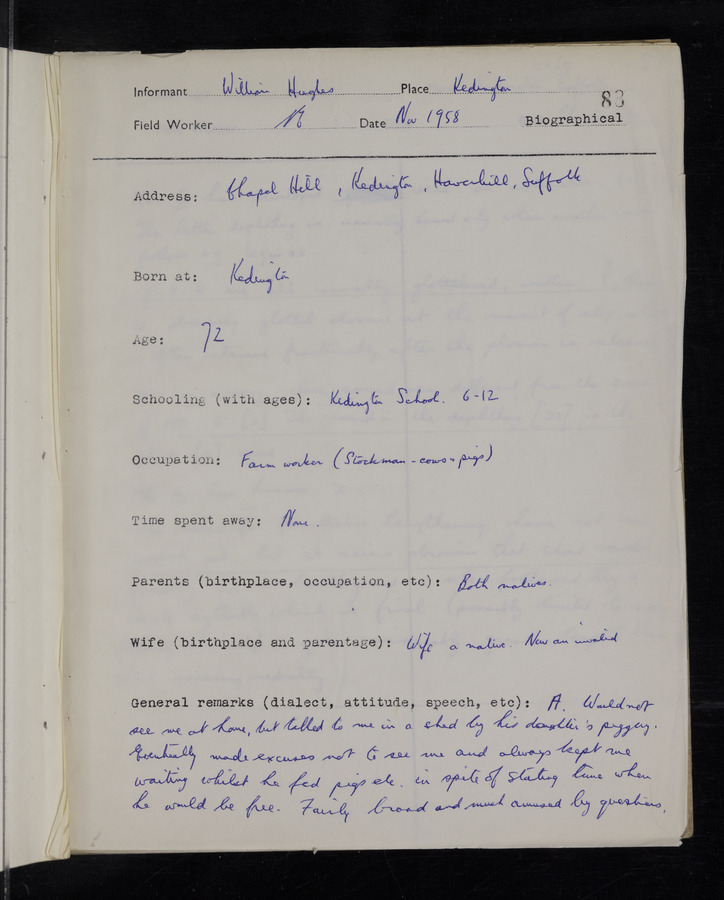 Informant William Hughes Place Kedington
83
Field Worker Date Nov 1958 Biographical
Address: Chapel Hill, Kedington, Haverhill, Suffolk
Born at: Kedington
Age: 72
Schooling (with ages): Kedington School. 6-12
Occupation: Farm worker (Stockman - cows & pigs)
Time spent away: None.
Parents (birthplace, occupation, etc): Both natives.
Wife (birthplace and parentage): Wife a native. Now an invalid
General remarks (dialect, attitude, speech, etc): A. Would not
see me at home, but talked to me in a shed by his daughter's piggery.
Eventually made excuses not to see me and always kept me
waiting whilst he fed pigs etc. in spite of stating time when
he would be free. Fairly broad and much amused by questions.